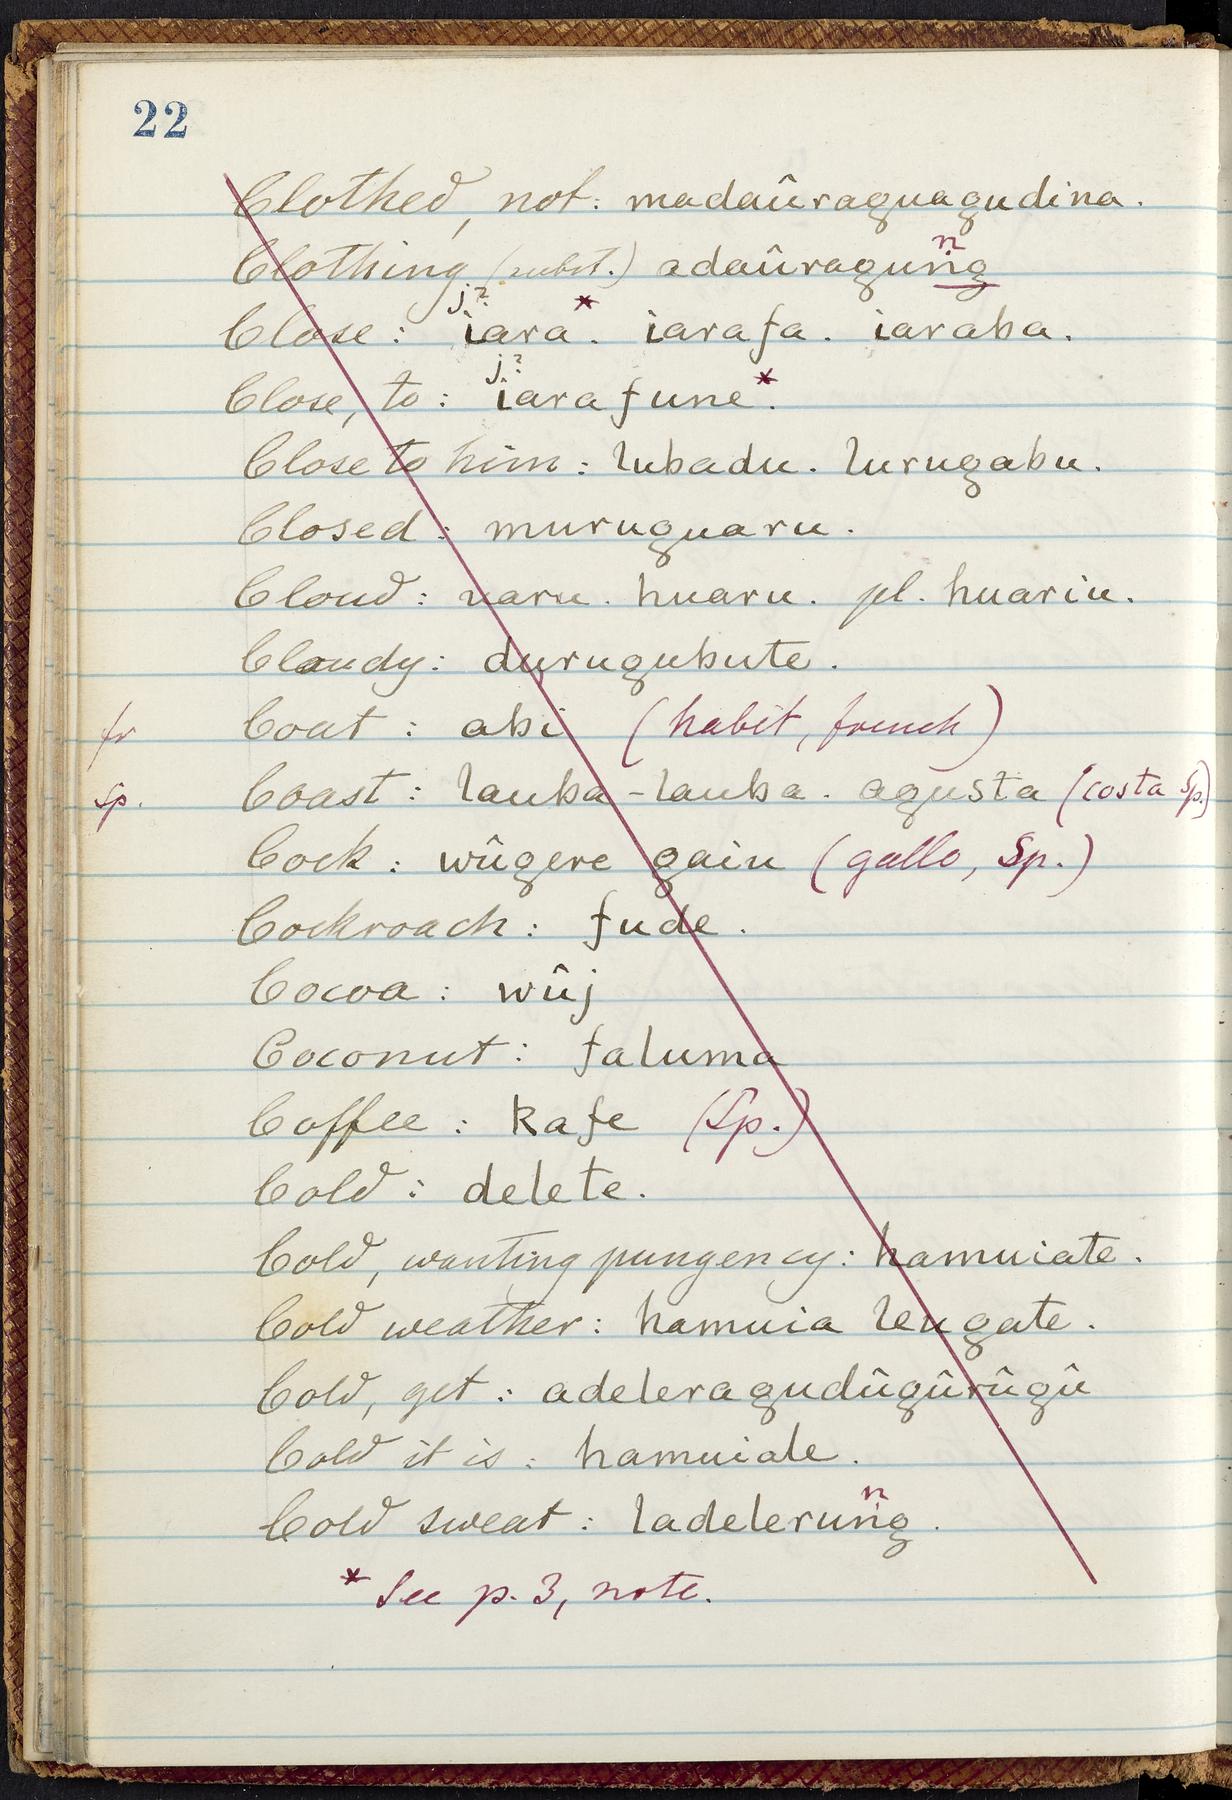 22
Clothed, not: madaûraguagudina.
n
Clothing (subst.) adaûraguñg
j?
Close: iara*. iarafa. iaraba.
j?
Close, to: iarafune*.
Close to him: lubadu. lurugabu.
Closed: muruguaru.
Cloud: uaru. huaru. pl. huariu.
Cloudy: durugubute.
fr Coat: abi (habit, french)
sp. Coast: lauba-lauba. agusta (costa Sp.)
Cock: wûgere gaiu (gallo, Sp.)
Cockroach: fude.
Cocoa: wûj
Coconut: faluma
Coffee: kafe (Sp.)
Cold: delete.
Cold, wanting pungency: hamuiate.
Cold weather: hamuia leugate.
Cold, get: adeleragudûgûrûgû
Cold it is: hamuiale.
n
Cold sweat: ladeleruñg.
* See p. 3, note.